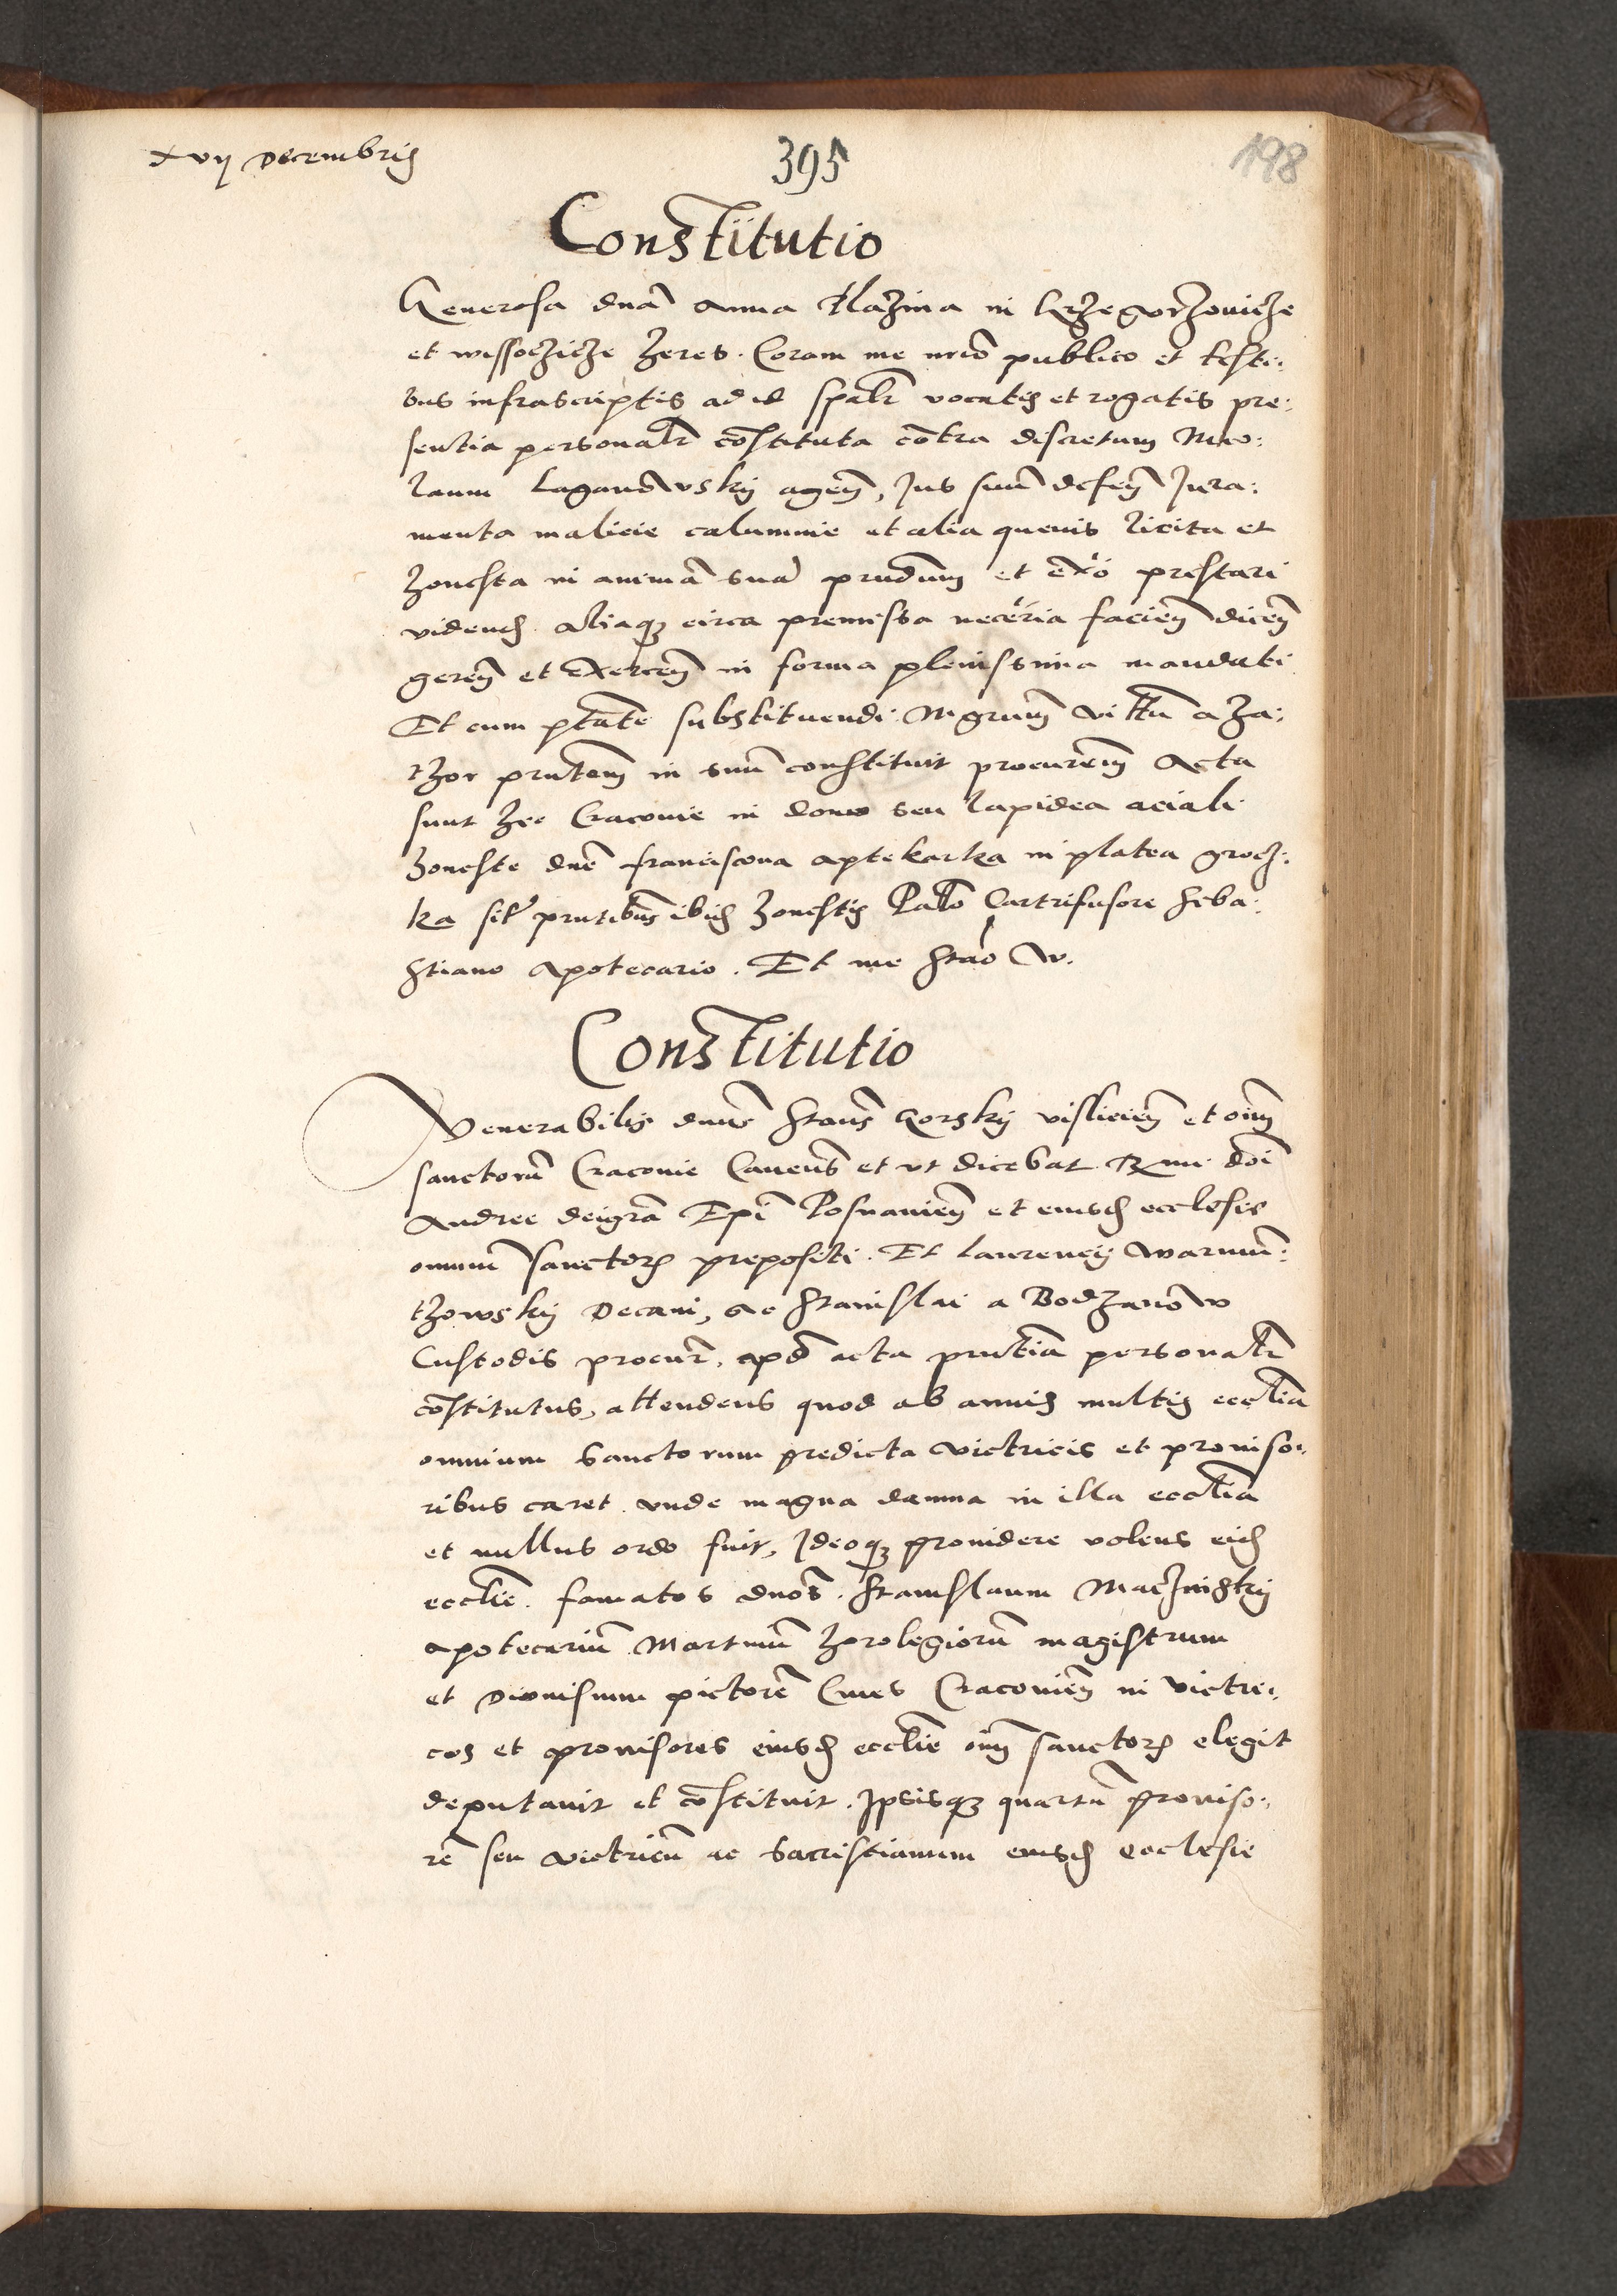 xvij Decembris
395
198
Constitutio
Generosa dna Anna Plazina in Grzegorzovicze
et wissoczicze heres. Coram me nrio publico et testi:
bus infrascriptis ad id spalr vocatis et rogatis pre:
sentia personalr costituta cotra discretum Nico:
laum Laganowskij agen, Jus suum defen Jura:
menta malicie calumnie et alia quevis licita et
honesta in anima sua prudum et exo prestari
videnda aliaque circa premissa neceria facien dicen
geren et exercen in forma plenissima mandati
Et cum ptate substituendi. Mgrum vittu a Za:
thor prntem in suu constituit procurem Acta
sunt hec Cracovie in domo seu lapidea aciali
honeste dne franciscova aptekarka in platea grocz:
ka silr prntibus ibidem honestis Palo Cartrifusore Seba:
stiano Apotecario. Et me Stao W.
Constitutio
Venerabilis dnus Staus Gorskij vislicien et oim
sanctoru Cracovie Canens et ut dicebat Rmi doi
Andree dei gra Epi Posnanien et eiusdem ecclesie
omnium sanctorum prepositi. Et laurencij warnun:
thowskij Decani, ac Stanislai a Bodzanow
Custodis procur, apd acta prntia personalr
costitutus, attendens quod ab annis multis ecclia
omnium sanctorum predicta victricis et proviso:
ribus caret unde magna damna in illa ecclia
et nullus ordo fuit, Ideoque providere volens eidem
ecclie. famatos dnos. Stanislaum Maczinskij
apotecarium Martinu horolegioru magistrum
et Dionisium pictore Cives Cracovien in victri:
cos et provisores eiusdem ecclie oim sanctorum elegit
deputavit et costituit. Ipsisque quartu proviso:
re seu victricu ac sacristianum eiusdem ecclesie